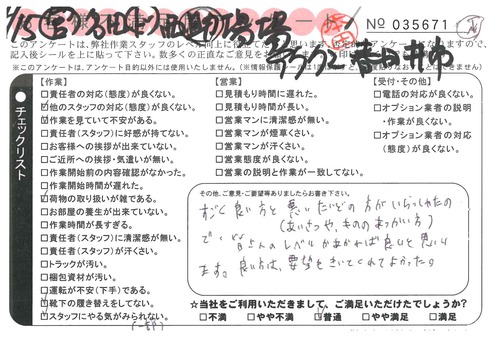 No 035671
このアンケートは、弊社作業スタッフのレベル向上に
記入後シールを上に貼って下さい。数多くの正直なご意見をお
※このアンケートは、アンケート目的以外には使用いたしません。
チェックリスト
【作業】
□責任者の対応(態度)が良くない。
□他のスタッフの対応(態度)が良くない。
□作業を見ていて不安がある。
□責任者(スタッフ)に好感が持てない。
□お客様への挨拶が出来ていない。
□ご近所への挨拶・気遣いが無い。
□作業開始前の内容確認がなかった。
□作業開始時間が遅れた。
□荷物の取り扱いが雑である。
□お部屋の養生が出来ていない。
□作業時間が長すぎる。
□責任者(スタッフ)に清潔感が無い。
□責任者(スタッフ)が汗くさい。
□トラックが汚い。
□梱包資材が汚い。
□運転が不安(下手)である。
□靴下の履き替えをしてない。
□スタッフにやる気がみられない。
(一部)
【営業】
□見積もり時間に遅れた。
□見積もり時間が長い。
□営業マンに清潔感が無い。
□営業マンが煙草くさい。
□営業マンが汗くさい。
□営業態度が良くない。
□営業の説明と作業が一致してない。
【受付・その他】
□電話の対応が良くない。
□オプション業者の説明
・作業が良くない。
□オプション業者の対応
(態度)が良くない。
その他、ご意見・ご要望等ありましたらお書き下さい。
すごく良い方と悪いたいどの方がいらっしゃたの
(あいさつや、もののあつかい方)
で、皆さんのレベルがあがれば良いと思い
ます。良い方は、要望をきいてくれてよかった。
☆当社をご利用いただきまして、ご満足いただけたでしょうか?
□不満 □やや不満 □普通 □やや満足 □満足